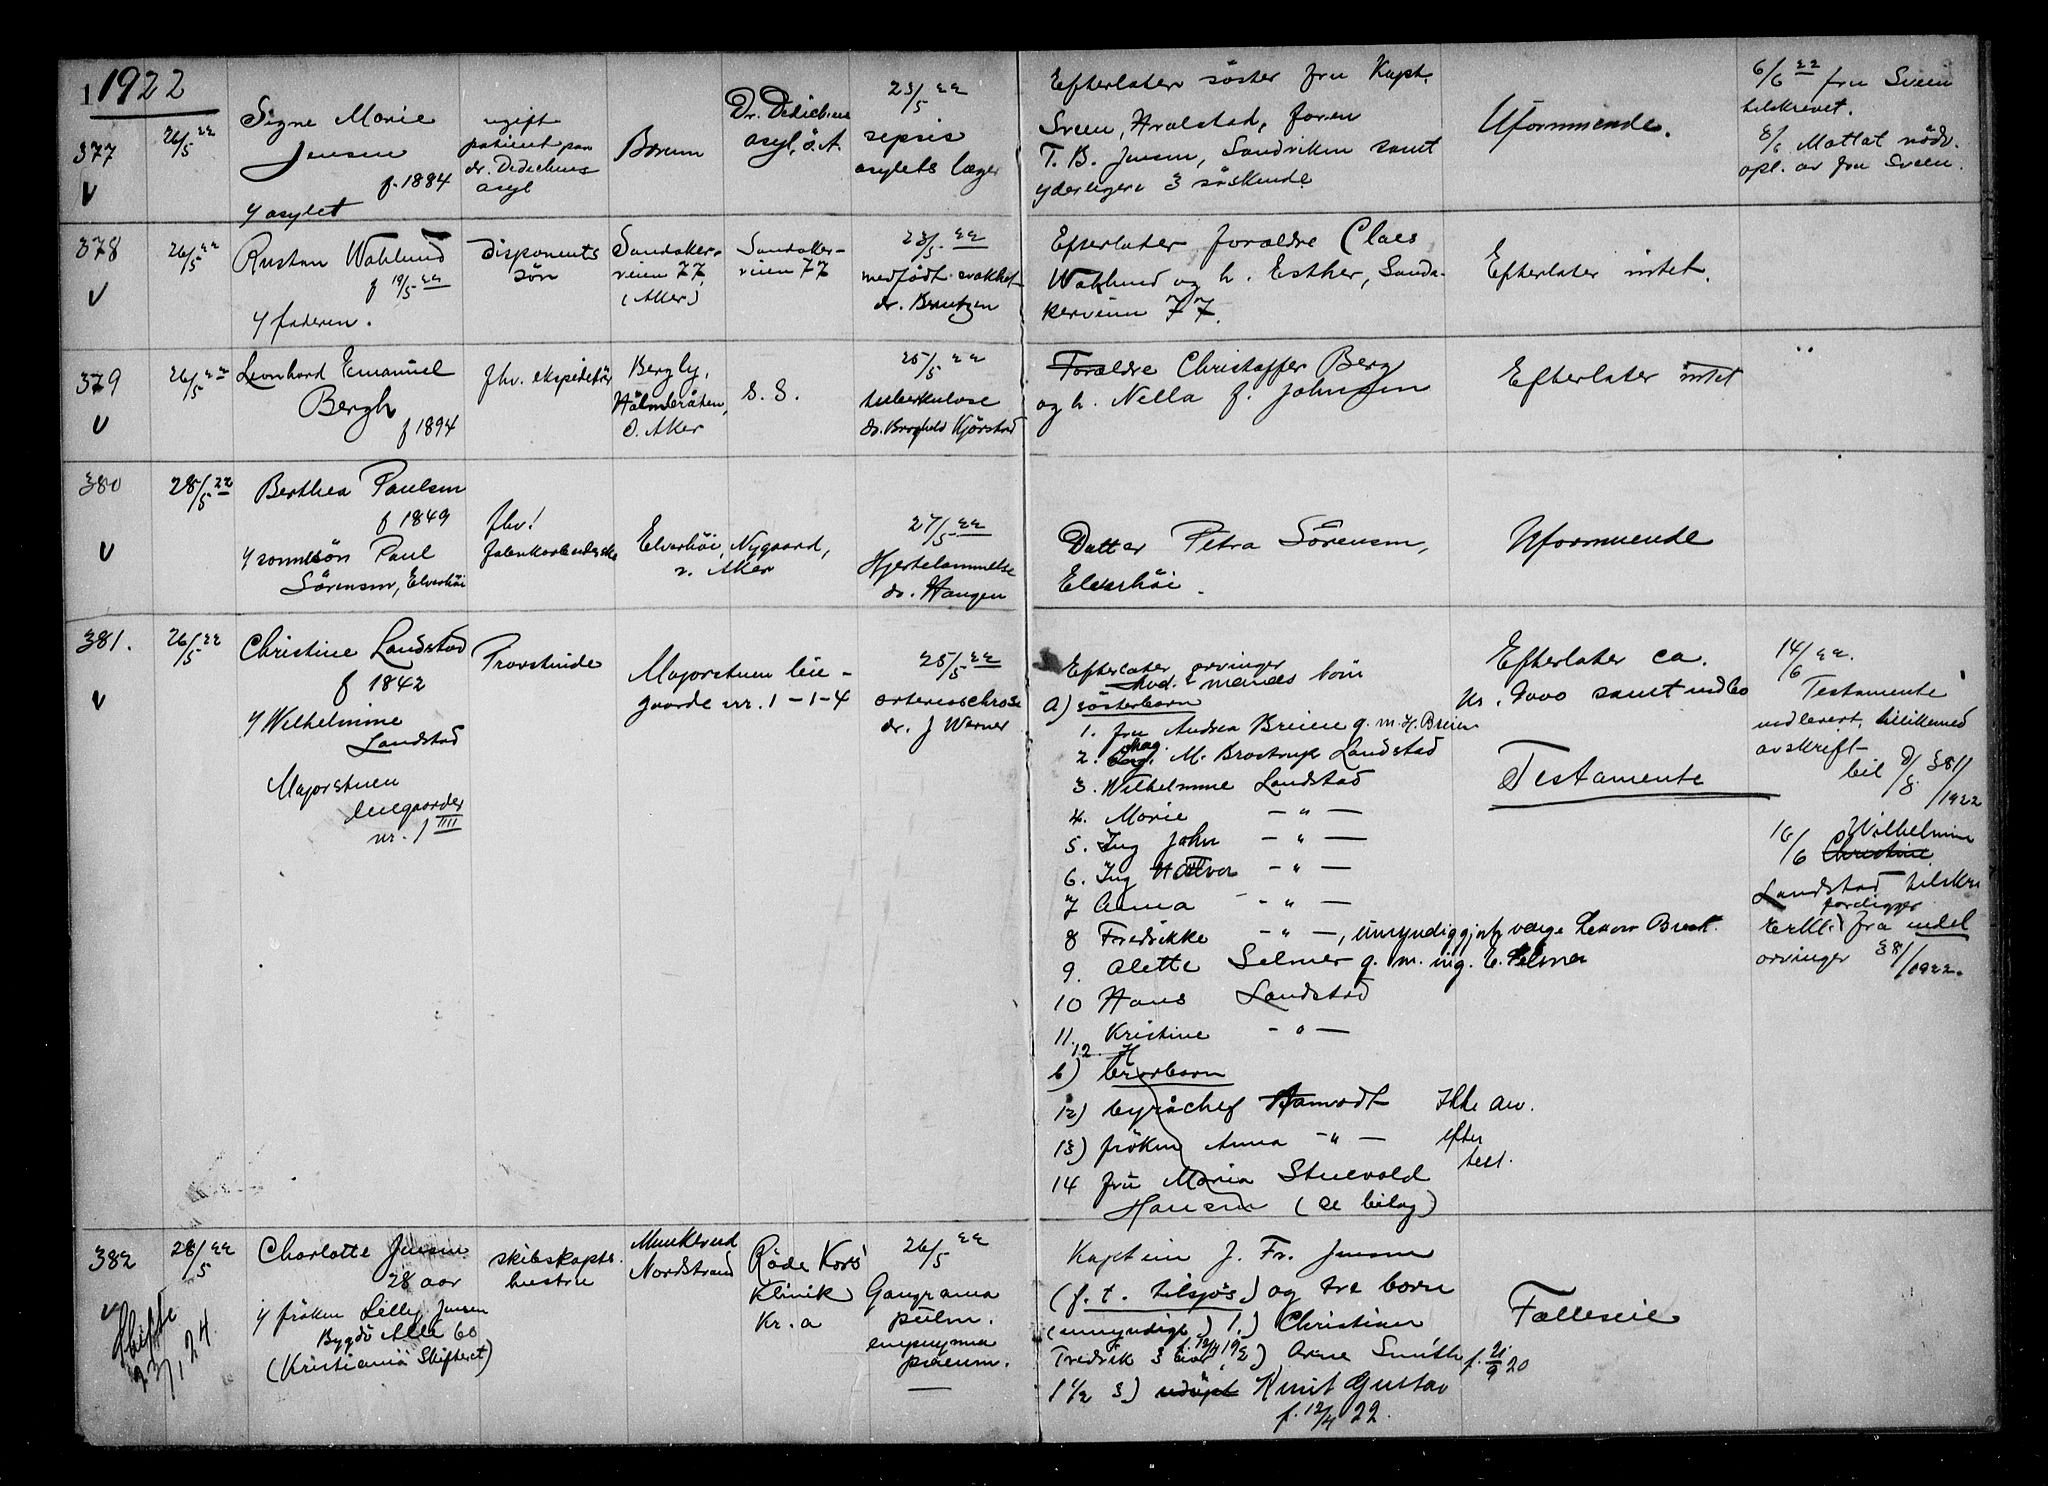 1922
377
26/5 22
Signe Marie
Jensen
f. 1884
v/ asylet
ugift
patient paa
dr. Dedichens
asyl
Bærum
Dr. Dedichens
asyl, ö. A.
23/5 22
sepsis
asylets læge
Efterlater söster fru Kapt.
Sveen, Hvalstad, foren
T. B. Jensen, Sandviken samt
yderligere 3 söskende
Uformuende.
6/6 22 fru Sveen
tilskrevet.
8/6 Mottat nödv.
opl. av fru Sveen.
378
26/5 22
Wahlund
f 19/5 22
v/ faderen.
Disponents
sön
Sandaker-
veien 77
(Aker)
Sandaker-
veien 77
23/5 22
medfödt svakhet
dr. Berntzen
Efterlater forældre Claes
Wahlund og h. Esther, Sanda-
kerveien 77.
Efterlater intet.
379
26/5 22
Leonhard Emanuel
Bergh
f 1894
fhv. ekspeditör
Bergly,
Holmlråten,
ö. Aker
S. S.
25/5 22
tuberkulose
dr. Borghild Kjörstad
Forældre Christoffer Berg
og h. Nella f. Johnsen
Efterlater intet
380
28/5 22
Berthea Paulsen
f 1849
v/ sönnesön Paul
Sörensen, Elverhöi
fhv.
Elverhöi, Nygaard,
v. Aker
27/5 22
Hjertelammelse
dr. Haugen
Datter Petra Sörensen,
Elverhöi.
Uformuende
381.
26/5 22
Christine Landstad
f 1842
v/ Wilhelmine
Landstad
Majorstuen
leiegaarder
nr. 1 IIII
Provstinde
Majorstuen leie-
gaarde nr. 1-1-4
25/5 22
arteriosclerose
dr. J Werner
Efterlater arvinger
Avd. mands barn
a) söster barn
1. fru Andrea Breien g. m. H. Breien
2. M. Brostrup Landstad
3. Wilhelmine Landstad
4. Marie — " —
5. Ing John — " —
6. Ing Halvor — " —
7 Anna — " —
8 Fredrikke — " —, umyndiggjort, værge
9. Alette Selmer g. m. ing. E. Selmer
10 Hans Landstad
11. Kristine — " —
12.
b) brorbarn
12) byråchef Hamvodt Ikke arv.
13) fröken Anna — " — efter
test.
14 fru Maria Stuevold
Hansen (se bilag)
Efterlater ca.
kr. 9000 samt indbo
Testamente
14/6 22.
Testamente
indlevert, tillikemed
avskrift
bil 9/8 381/1922
16/6 Wilhelmine
Christine
Landstad tilskr.
færdigger
erkl. fra endel
arvinger 381/1922.
382
28/5 22
Skifte
23/1 24.
Charlotte Jensen
28 aar
v/ fröken Lilly Jensen
Bygdö Alle 60
(Kristiania Skifteret)
skibskapts.
hustru
Munkerud
Nordstrand
Röde Kors'
Klinik
Kr. a
26/5 22
Gangræna
pulm.
empyema
pleurae.
Kaptein J. Fr. Jensen
(f. t. tilsjös) og tre barn
(umyndige) 1.) Christian
Fredrik 3 aar f. 12/4 19, 2) Arne Smith f. 21/9 20
1 1/2 3) udöpt Knut Gustav
f. 12/4 22.
Fælleseie